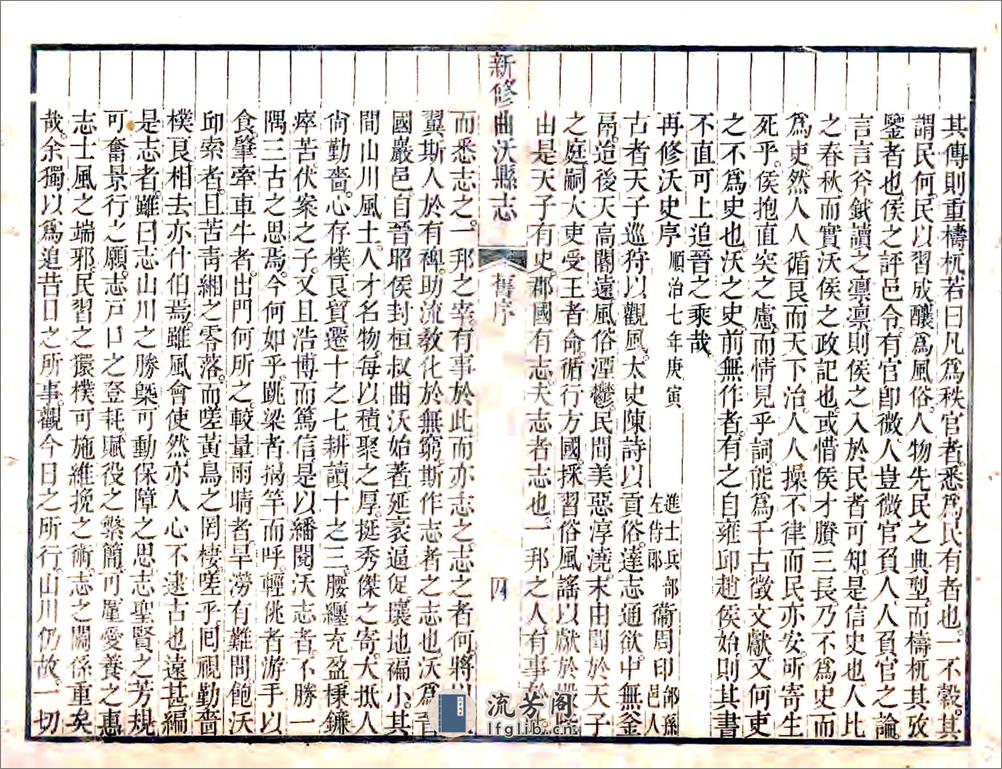 其傳則重檮杌若曰凡爲秩官者悉爲民有者也一不穀其
謂民何民以習成釀爲風俗人物先民之典型而檮杌其攷
鑒者也侯之評邑令有官卽微人豈微官負人人負官之論
言言斧鉞讀之凛凛則侯之入於民者可知是信史也人比
之春秋而實沃侯之政記也或惜侯才賸三長乃不爲史而
爲吏然人人循良而天下治人人操不律而民亦安所寄生
死乎侯抱直突之慮而情見乎詞能爲千古徵文獻又何吏
之不爲史也沃之史前無作者有之自雍邱趙侯始則其書
不直可上追晉之乘哉
再修沃史序 順治七年庚寅 進士兵部左侍郎 衞周印 邑人
古者天子巡狩以觀風太史陳詩以貢俗達志通欲中無釜
鬲迨後天高闇遠風俗潭鬱民間美惡淳澆末由聞於天子
之庭嗣大吏受王者命循行方國採習俗風謠以獻於
由是天子有史郡國有志夫志者志也一邦之人有事
新修曲沃縣志 舊序 四
而悉志之一邦之幸有事於此而亦志之志之者何將以
翼斯人於有裨助流敎化於無窮斯作志者之志也沃爲晉
國嚴邑自晉昭侯封桓叔曲沃始著延袤逼促壤地褊小其
間山川風土人才名物每以積聚之厚挺秀傑之寄大抵人
尙勤嗇心存樸良貿遷十之七耕讀十之三腰纏充盈棟鐮
瘁苦伏案之子又且浩博而篤信是以繙閱沃志者不勝一
隅三古之思焉今何如乎跳梁者揭竿而呼輕佻者游手以
食肇牽車牛者出門何所之較量雨晴者旱澇有難問飽沃
邱索者且苦靑緗之零落而嗟黃鳥之罔棲嗟乎囘視勤嗇
樸良相去亦什伯焉雖風會使然亦人心不逮古也遠甚編
是志者雖曰志山川之勝槩可動保障之思志聖賢之芳規
可奮景行之願志戸口之登耗賦役之繁簡可厪愛養之惠
志士風之端邪民習之獧樸可施維挽之術志之關係重矣
哉余獨以爲追昔日之所事觀今日之所行山川仍故一切
流芳阁
lfglib.cn